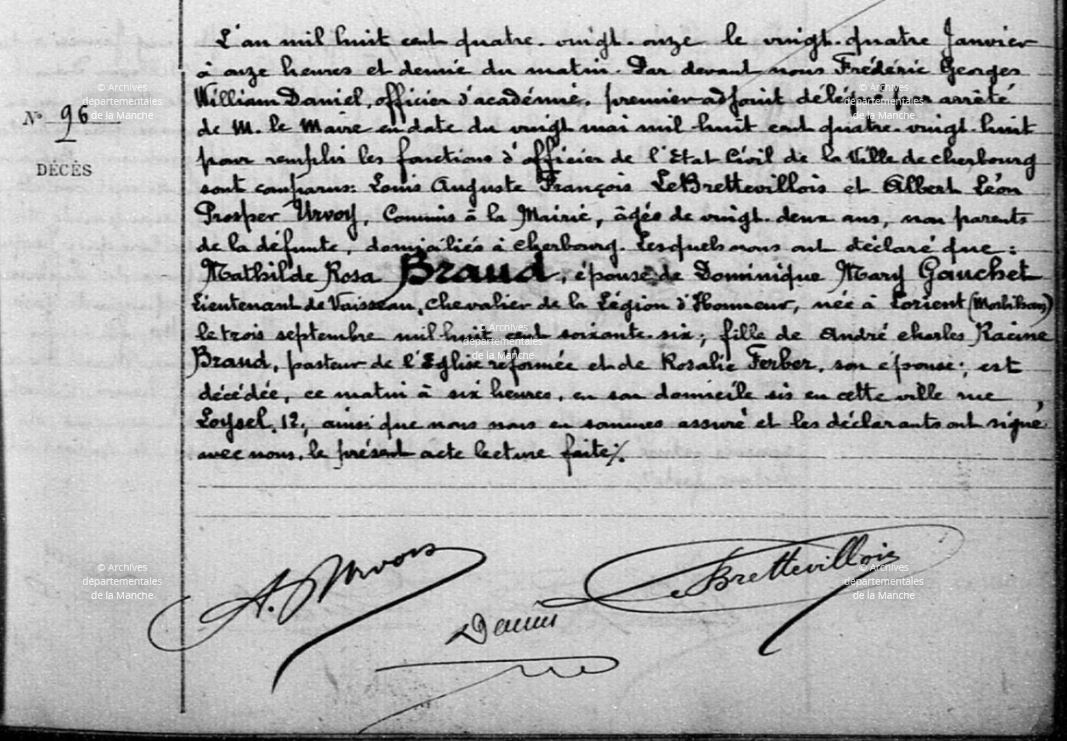 L'an mil huit cent quatre-vingt-onze le vingt-quatre Janvier
à onze heures et demie du matin. Par devant nous Frédéric Georges
William Daniel, officier d'académie, premier adjoint délégué par arrêté
de M. le Maire en date du vingt mai mil huit cent quatre-vingt-huit
pour remplir les fonctions d'officier de l'Etat Civil de la Ville de cherbourg
sont comparus: Louis Auguste François LeBrettevillois et Albert Léon
Prosper Urvoy, Commis à la Mairie, âgés de vingt-deux ans, non parents
de la défunte, domiciliés à cherbourg. Lesquels nous ont déclaré que:
Mathilde Rosa Braud, épouse de Dominique Mary Gauchet
Lieutenant de Vaisseau, Chevalier de la Légion d'Honneur, née à Lorient (Morbihan)
le trois septembre mil huit cent soixante-six; fille de André charles Racine
Braud, pasteur de l'Eglise reformée et de Rosalie Ferber, son épouse; est
décédée, ce matin à six heures, en son domicile sis en cette ville rue
Loysel, 12, ainsi que nous nous en sommes assuré et les déclarants ont signé
avec nous, le présent acte lecture faite ./.
N° 96
DÉCÈS
A. Urvois
Daniel
LeBrettevillois
© Archives
départementales
de la Manche
© Archives
départementales
de la Manche
© Archives
départementales
de la Manche
© Archives
départementales
de la Manche
© Archives
départementales
de la Manche